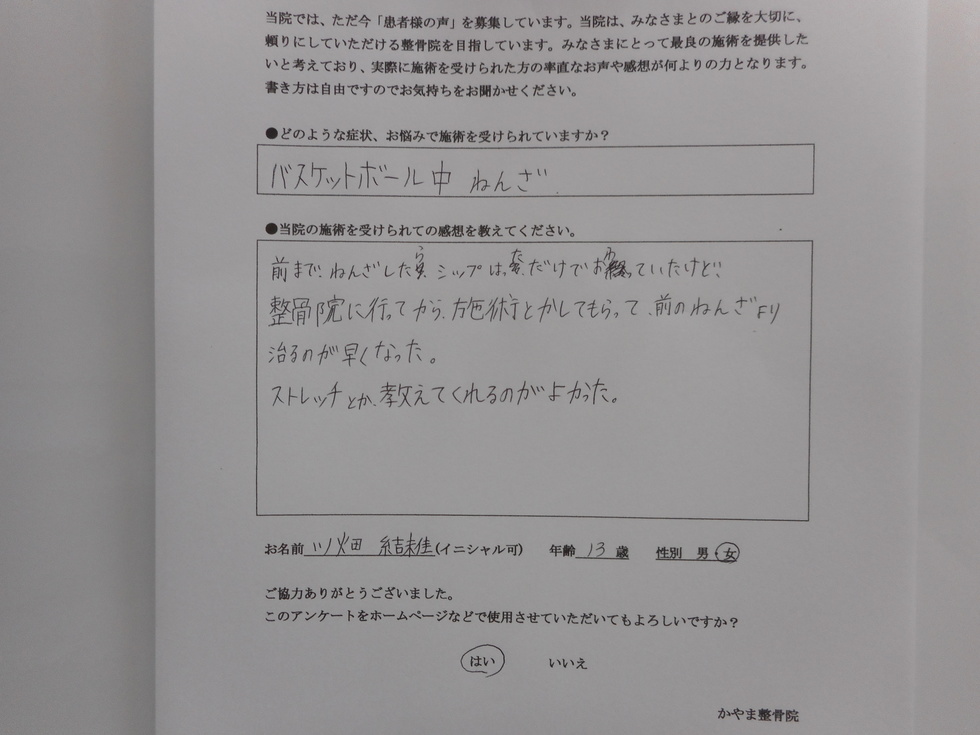 当院では、ただ今「患者様の声」を募集しています。当院は、みなさまとのご縁を大切に、
頼りにしていただける整骨院を目指しています。みなさまにとって最良の施術を提供した
いと考えており、実際に施術を受けられた方の率直なお声や感想が何よりの力となります。
書き方は自由ですのでお気持ちをお聞かせください。
●どのような症状、お悩みで施術を受けられていますか？
バスケットボール中 ねんざ
●当院の施術を受けられての感想を教えてください。
前まで、ねんざしたら、シップはっただけでおわっていたけど、
整骨院に行ってから、施術とかしてもらって、前のねんざより
治るのが早くなった。
ストレッチとか、教えてくれるのがよかった。
お名前 川畑 結佳(イニシャル可) 年齢 13 歳 性別 男・女
ご協力ありがとうございました。
このアンケートをホームページなどで使用させていただいてもよろしいですか？
はい いいえ
かやま整骨院